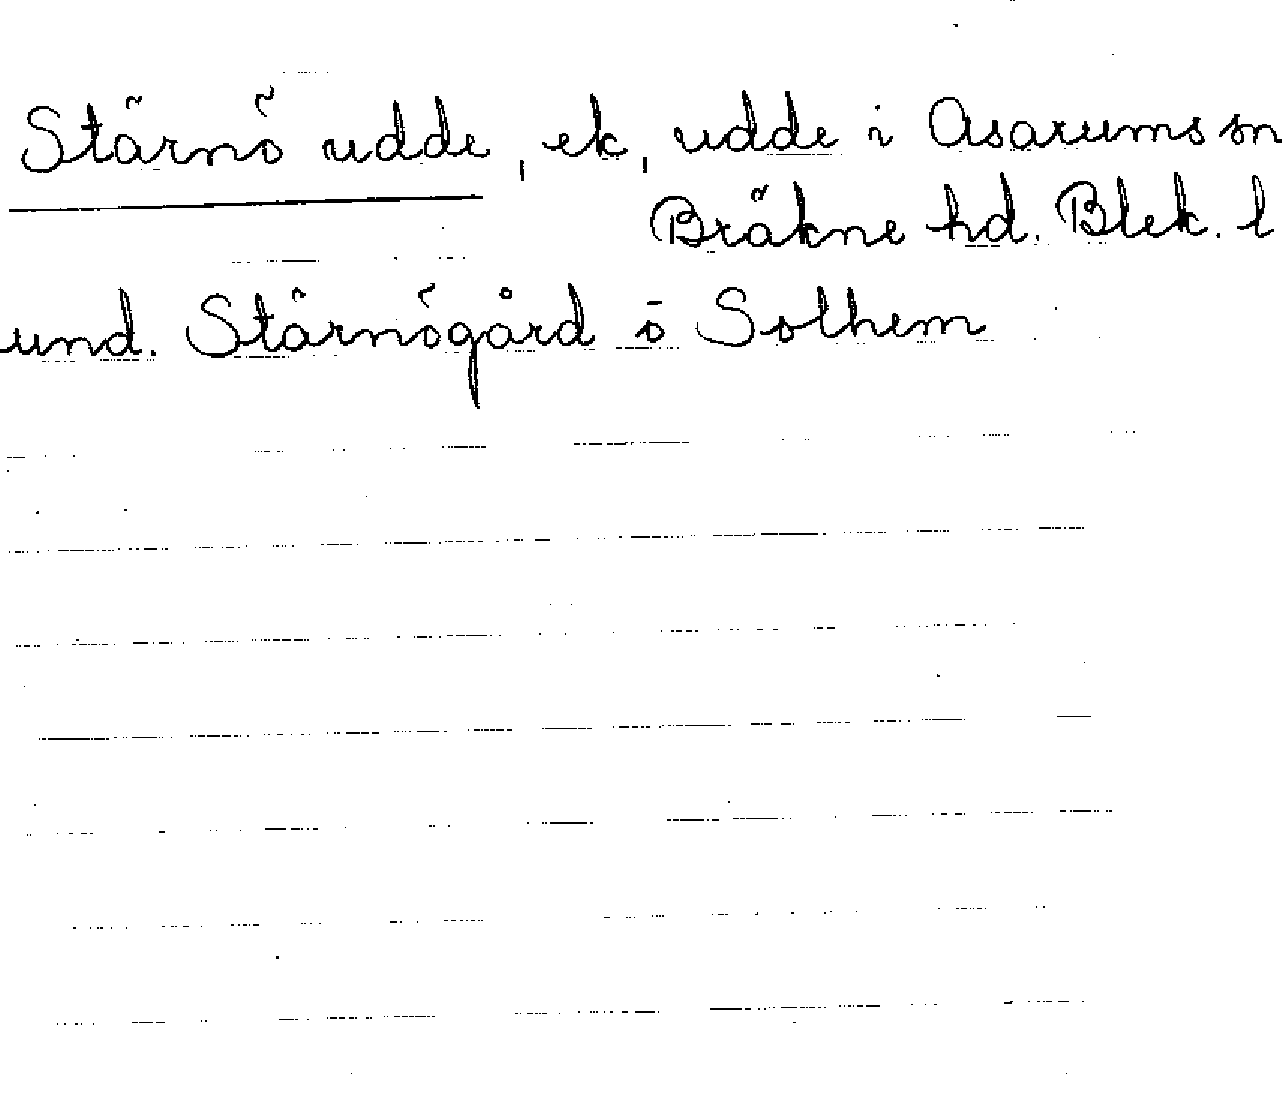 Stärnö udde, ek, udde i Asarums sn
Bräkne hd. Blek. l
und. Stärnögård ö Solhem